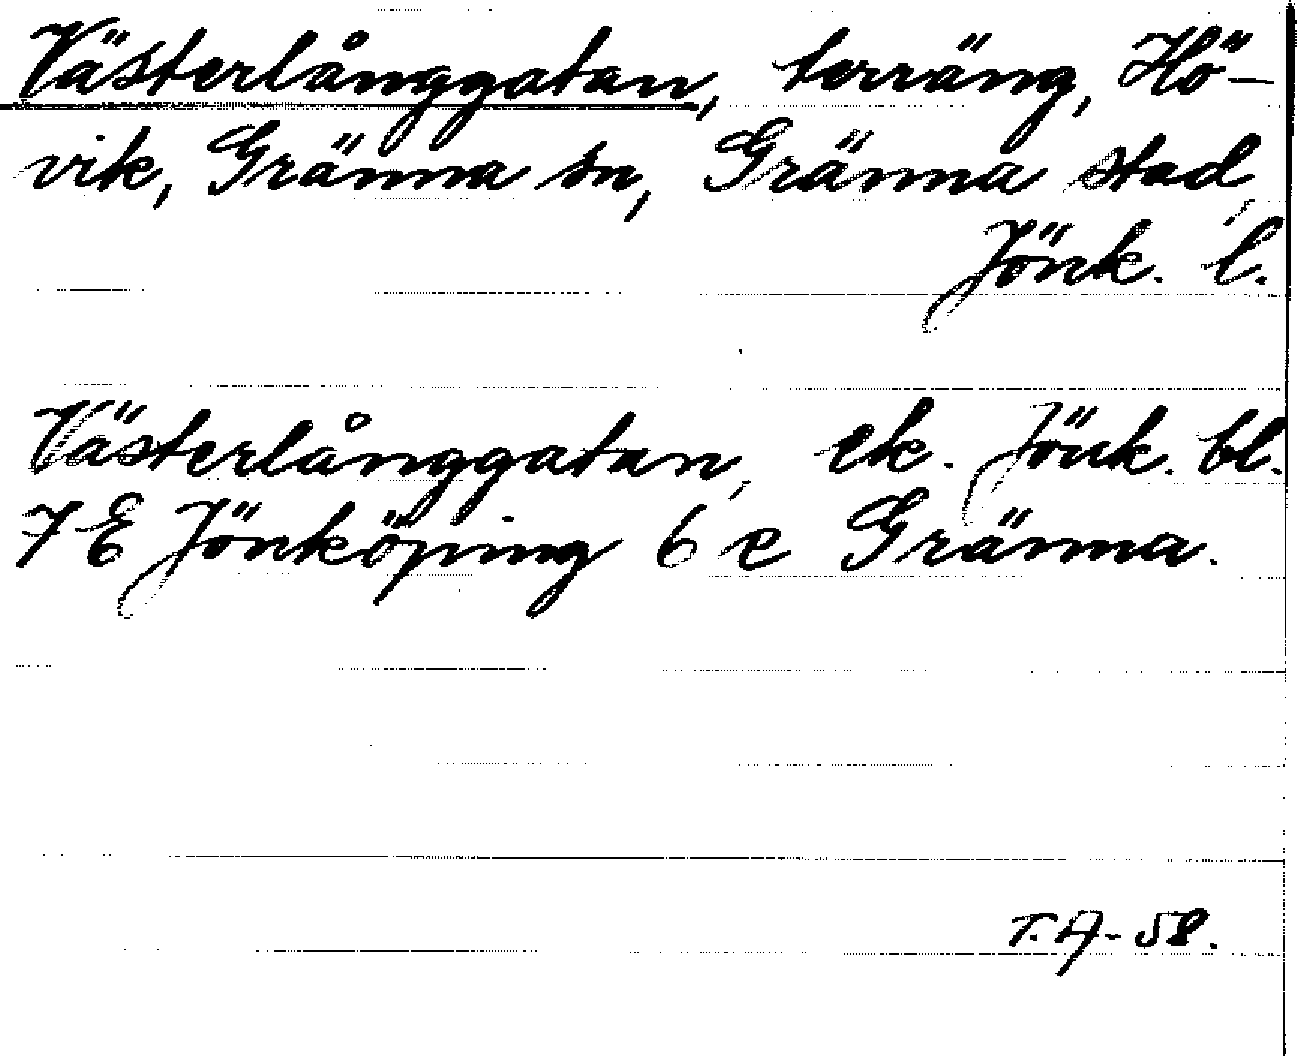 Västerlånggatan, terräng, Hö-
vik, Gränna sn, Gränna stad,
Jönk. l.
Västerlånggatan, ek. Jönk. bl.
7 E Jönköping 6 e Gränna.
T.A-58.